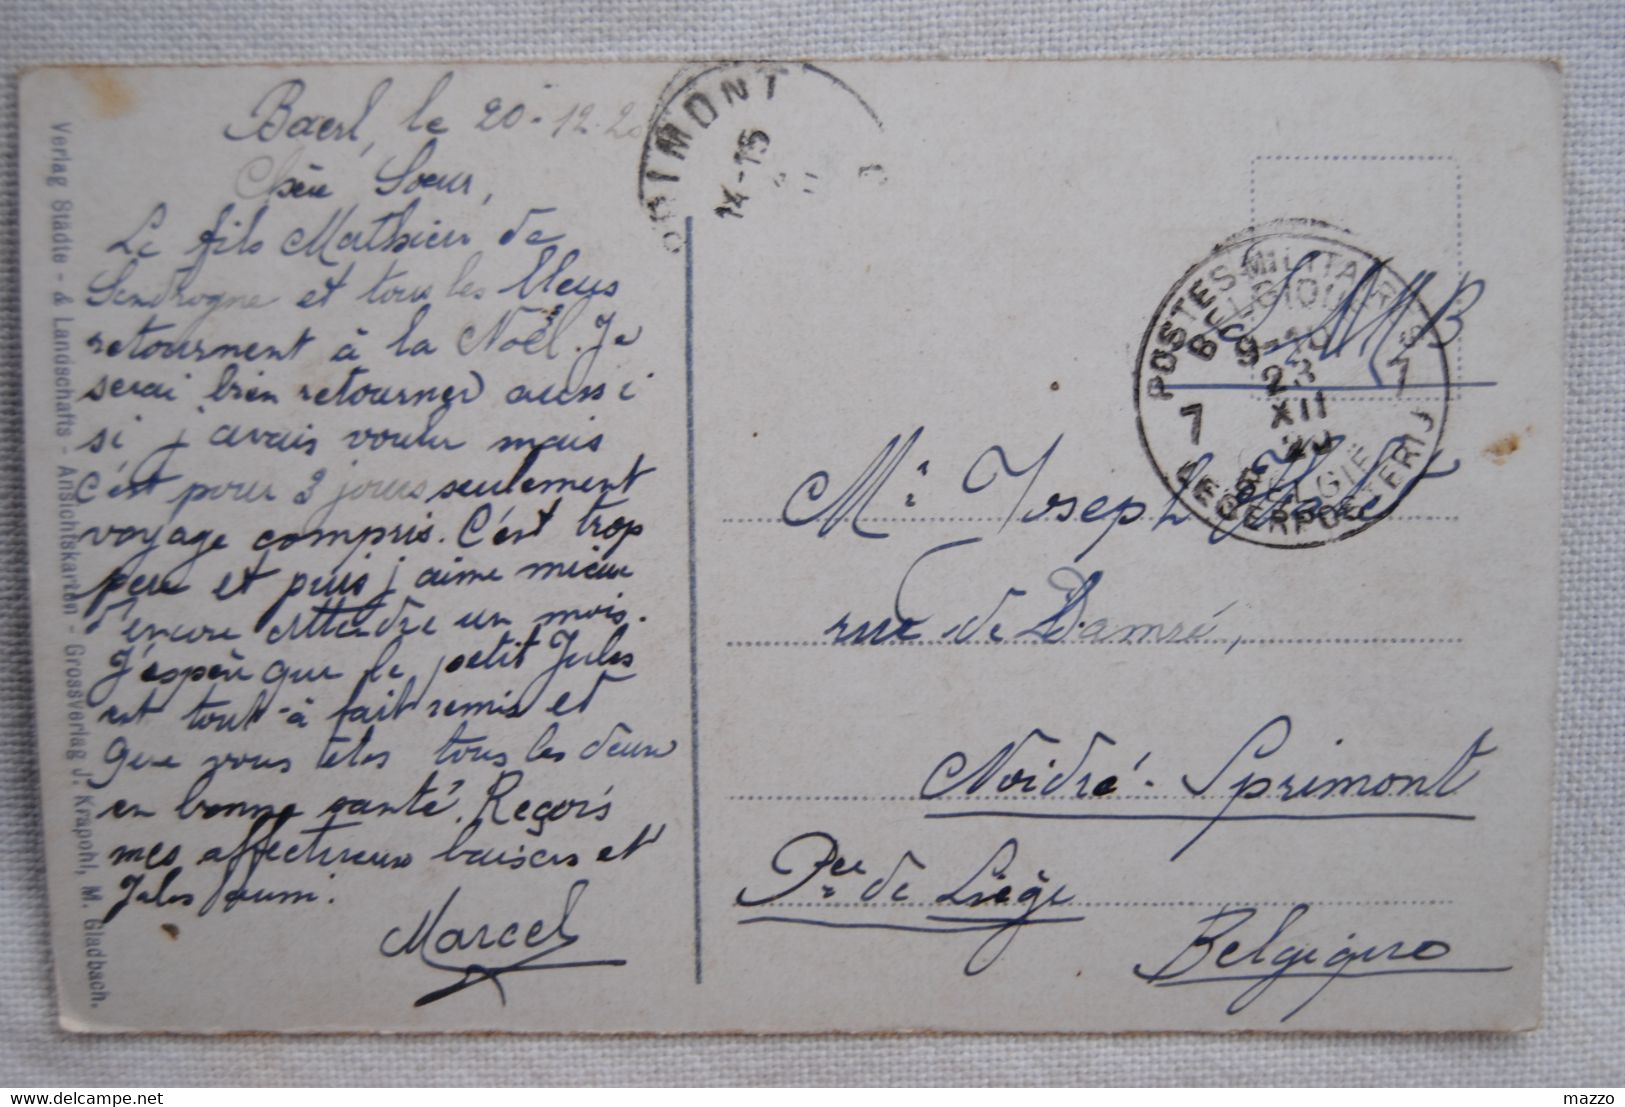 Baerl, le 20-12-20
Chère Soeur,
Le fils Mathieu de
Sendrogne et tous les bleus
retournent à la Noël. Je
serai bien retourner aussi
si j'avais voulu mais
C'est pour 3 jours seulement
voyage compris. C'est trop
peu et puis j'aime mieux
d'encore attendre un mois.
J'espère que le petit Jules
est tout-à fait remis et
que vous êtes tous les deux
en bonne santé. Reçois
mes affectueux baisers et
Jules aussi.
Marcel
Verlag Städte - & Landschafts - Ansichtskarten - Grossverlag J. Krapohl, M. Gladbach.
PRIMONT
14-15
S.M.B
POSTES MILITAIRES
BELGIQUE
7 7
23
XII
20
BELGIE
LEGERPOSTERIJ
Mr Joseph
rue de Damré,
Noidré - Sprimont
Pce de Liège
Belgique
mazzo